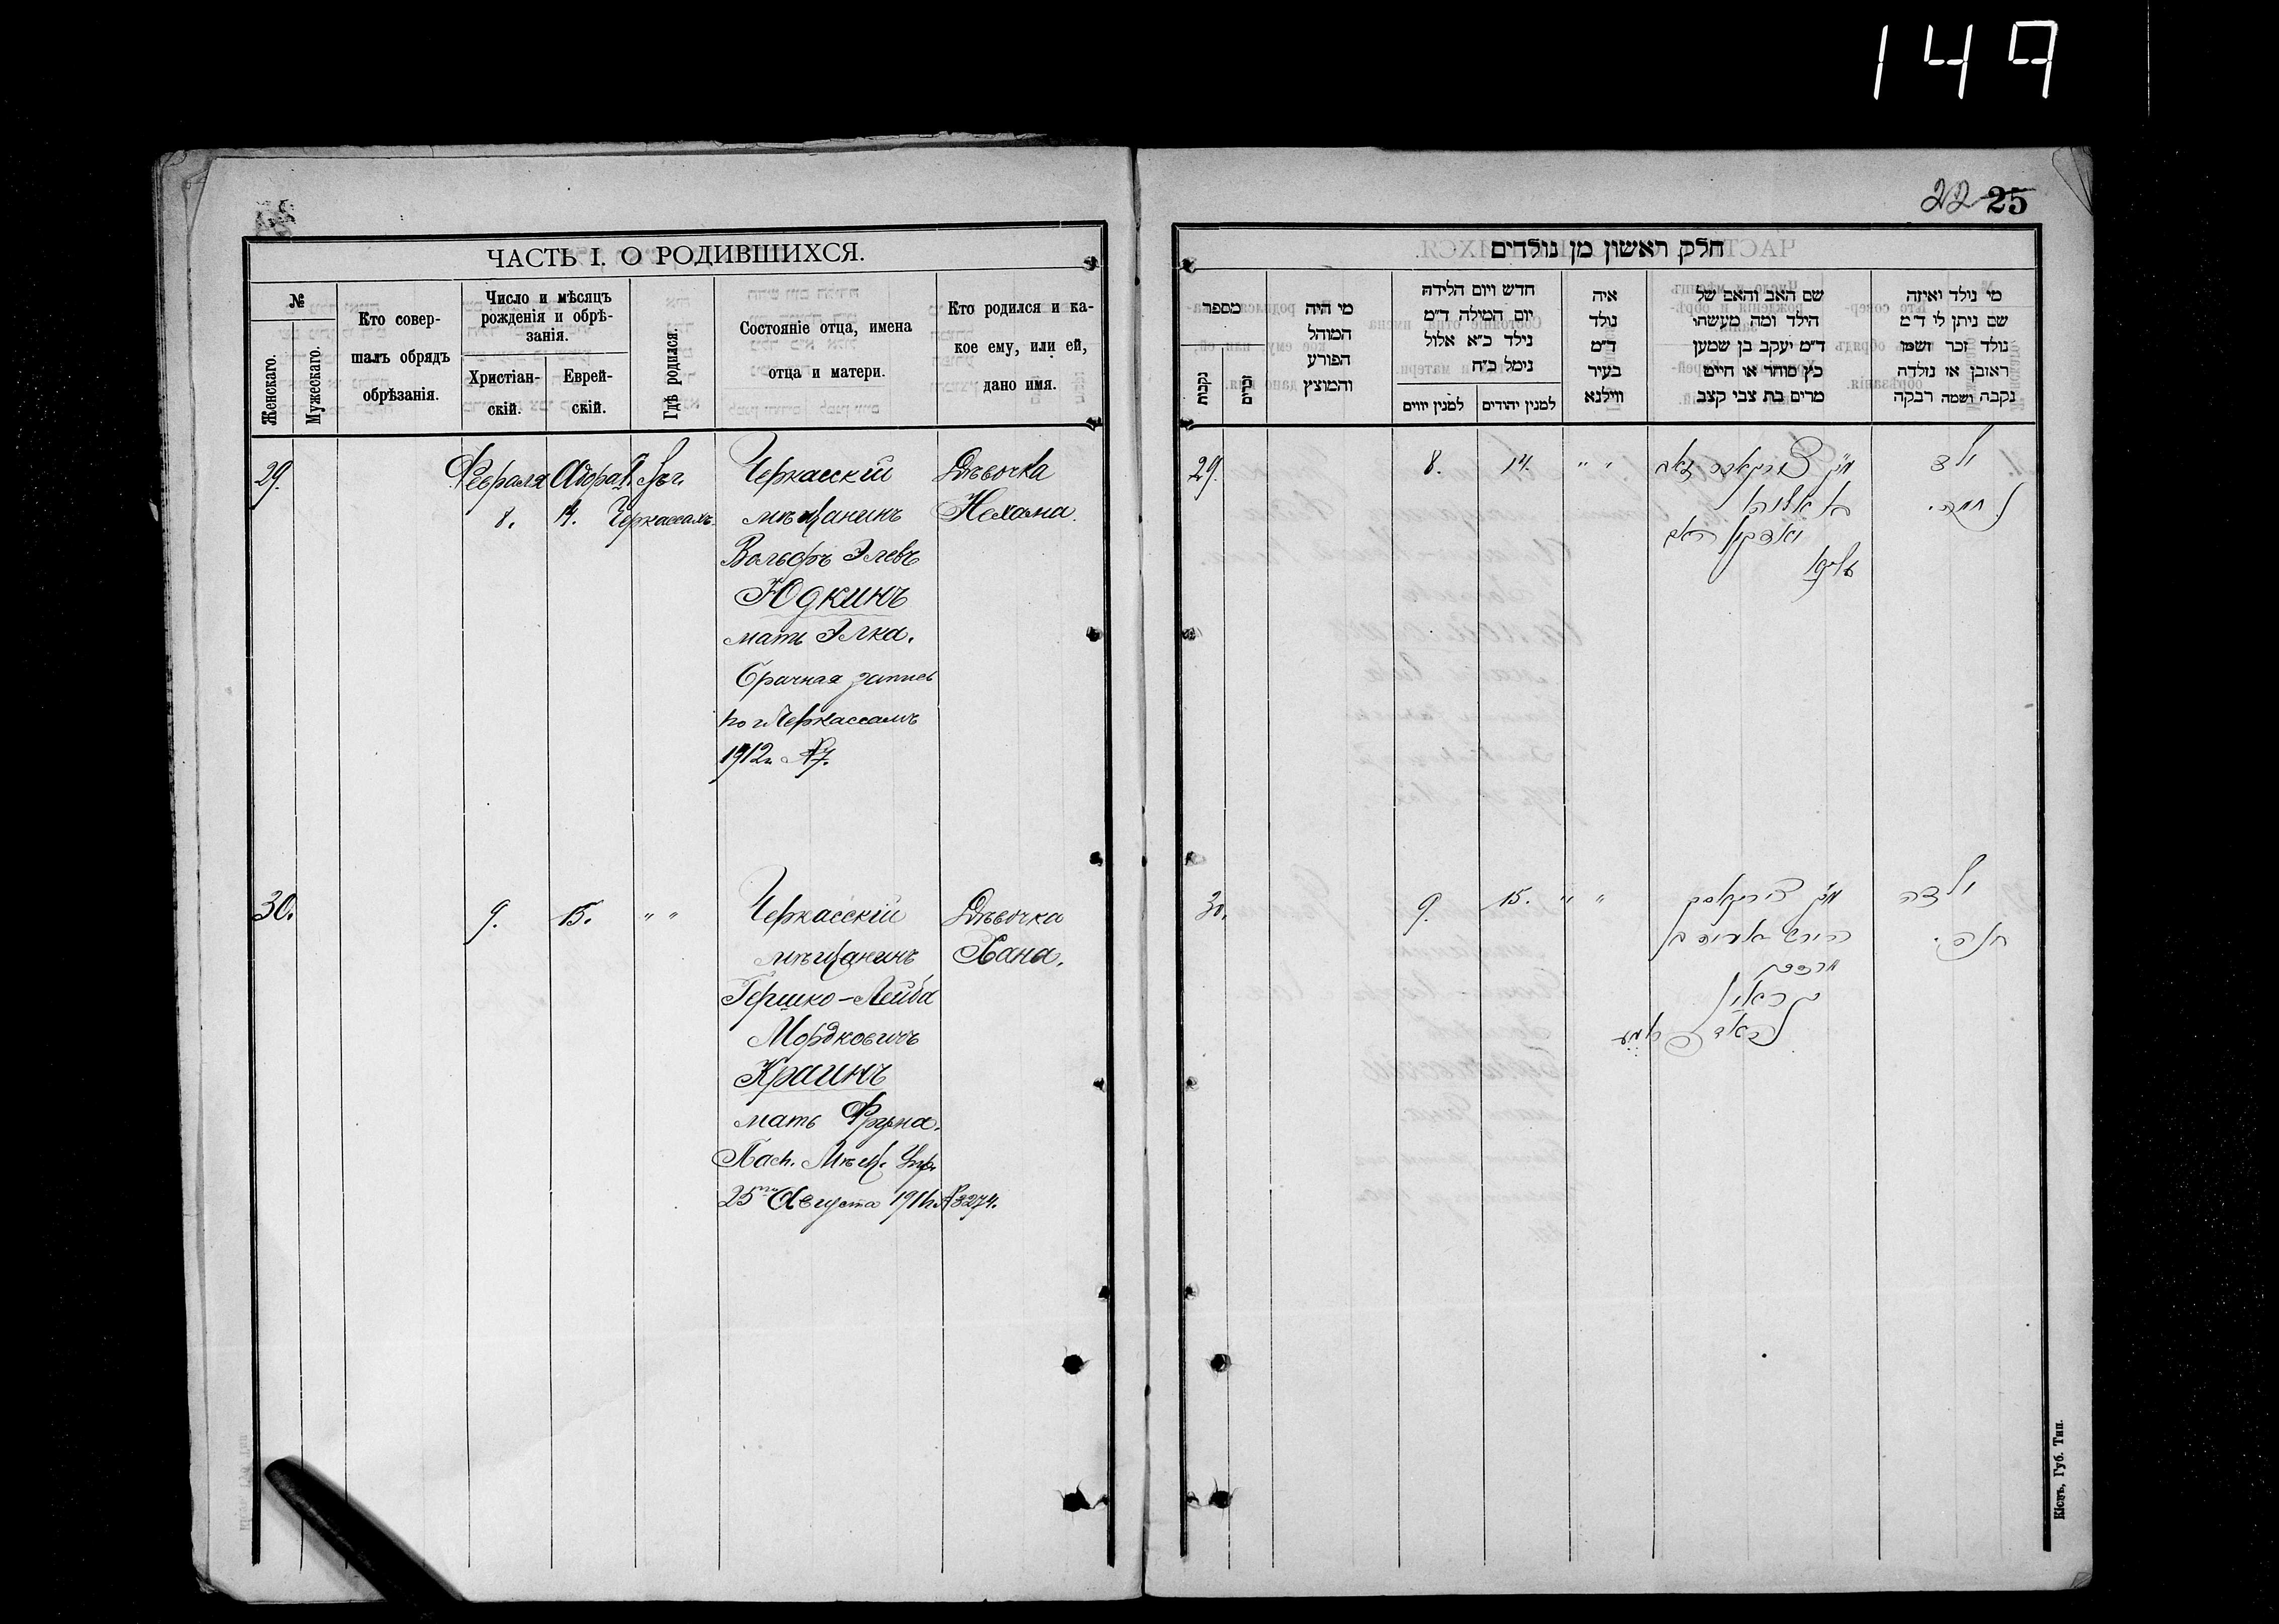 149
ЧАСТЬ I. О РОДИВШИХСЯ.
№
Женскаго.
Мужескаго.
Кто совер-
шалъ обрядъ
обрѣзанія.
Число и мѣсяцъ
рожденія и обрѣ-
занія.
Христіан-
скій.
Еврей-
скій.
Гдѣ родился.
Состояніе отца, имена
отца и матери.
Кто родился и ка-
кое ему, или ей,
дано имя.
29. Февраля Адора I. Въ г. Черкасскій Дѣвочка
8. 14. Черкассахъ. мѣщанинъ Нехама.
Вольфъ Элевъ
Юдкинъ
мать Элка.
Брачная запись
по г. Черкассамъ
1912 г. №7.
30. 9. 15. " " Черкасскій Дѣвочка
мѣщанинъ Хана.
Гершко-Лейба
Мордковичъ
Краинъ
мать Фрума.
Пасп. Мѣщ. Упр.
25го Августа 191 №3274.
22 25
חלק ראשון מן נולדים
מי נולד ואיזה
שם ניתן לו ד״מ
נולד זכר ושמו
ראובן או נולדה
נקבה ושמה רבקה
שם האב והאם של
הילד ומה מעשהו
ד״מ יעקב בן שמעון
כץ סוחר או חייט
מרים בת צבי קצב
איה
נולד
ד״מ
בעיר
ווילנא
חדש ויום הלידה
יום המילה ד״מ
נילד כ״א אלול
נימל כ״ח
למנין יהודים
למנין יווים
מי היה
המוהל
הפורע
והמוצץ
מספר
זכרים
נקבות
29. 8. 14. " "
30. 9. 15. " "
ילדה
חנה.
Кіевъ, Губ. Тип.